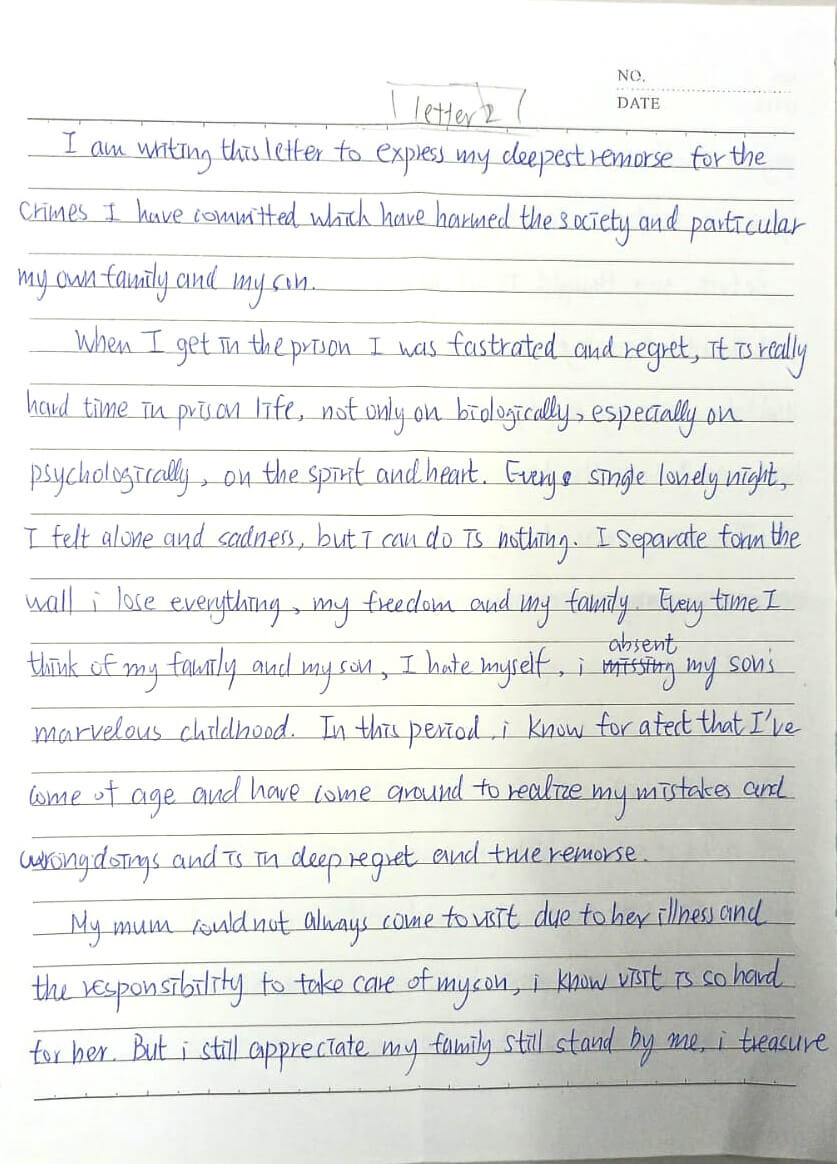 NO.
DATE
letter 2
I am writing this letter to express my deepest remorse for the
crimes I have committed which have harmed the society and particular
my own family and my son.
When I get in the prison I was fastrated and regret, it is really
hard time in prison life, not only on biologically, especially on
psychologically, on the spirit and heart. Every single lonely night,
I felt alone and sadness, but i can do is nothing. I separate form the
wall i lose everything, my freedom and my family. Every time I
absent
think of my family and my son, I hate myself, i missing my son's
marvelous childhood. In this period, i know for a fect that I've
come of age and have come around to realize my mistakes and
wrongdoings and is in deep regret and true remorse.
My mum could not always come to visit due to her illness and
the responsibility to take care of my son, i know visit is so hard
for her. But i still appreciate my family still stand by me, i treasure